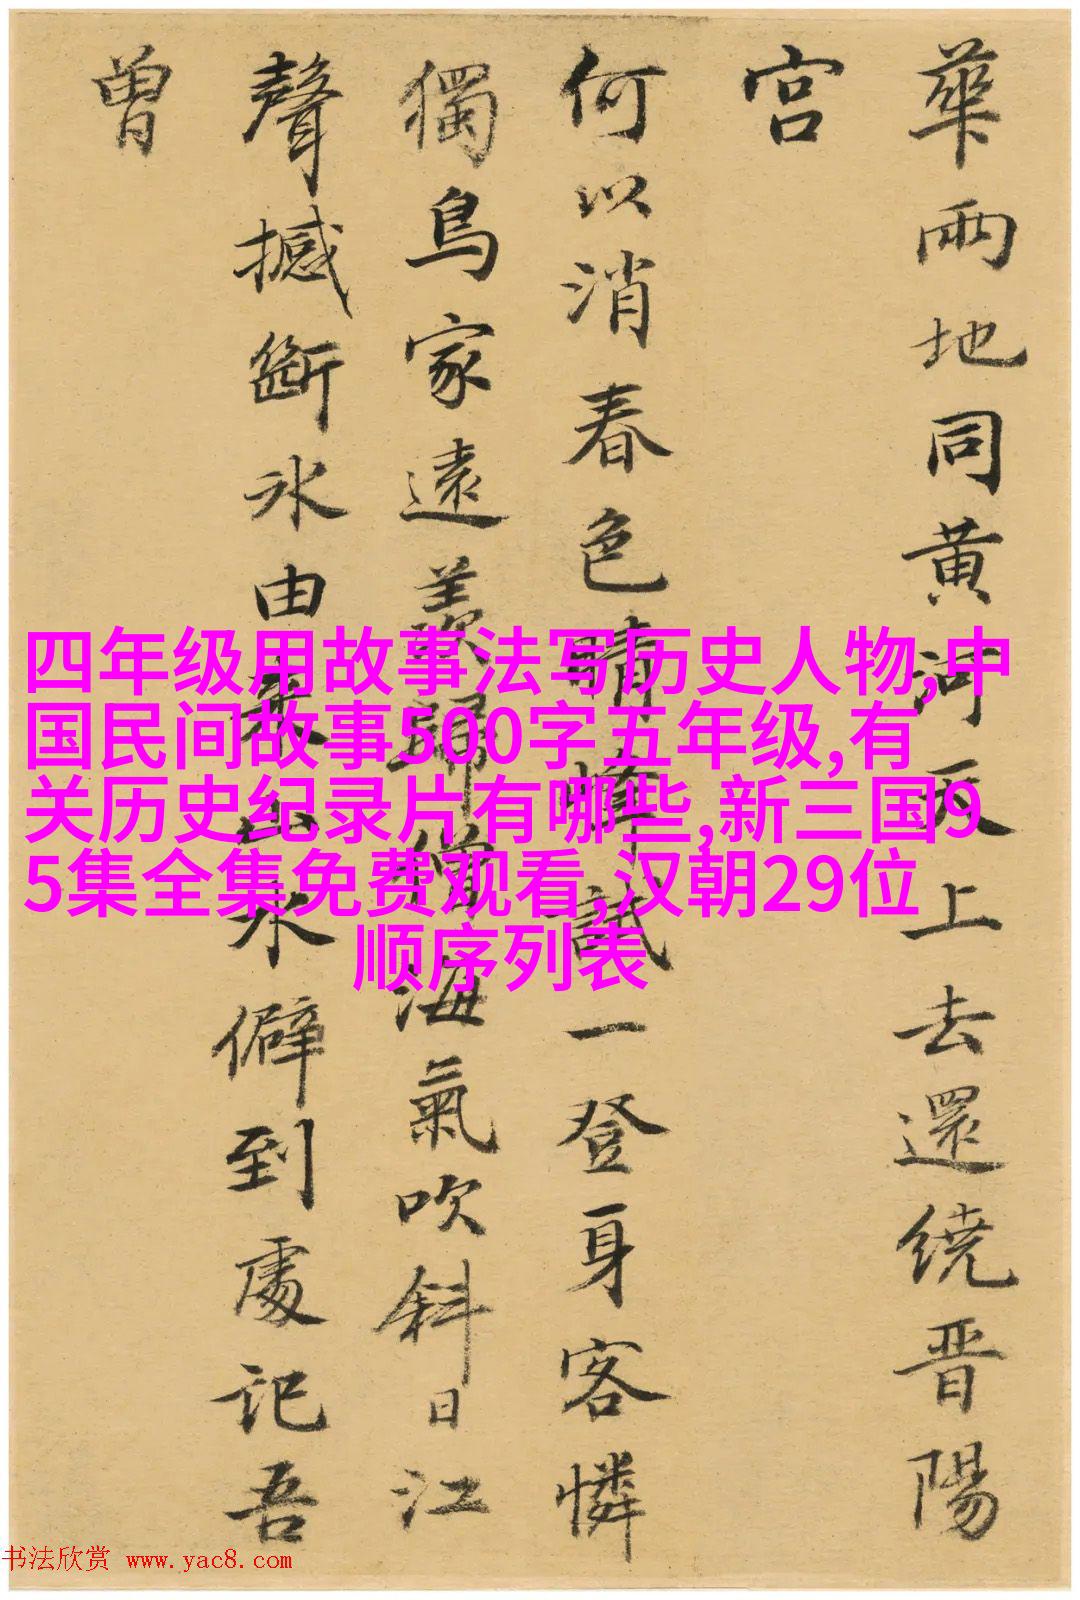 華兩地同黄河天上去還繞晋陽
宫
何以消春色晴峰試一登身客憐
獨鳥家遠羨歸僧海氣吹斜日江
聲撼斷冰由来山水僻到處記吾
曾
四年级用故事法写历史人物,中
国民间故事500字五年级,有
关历史纪录片有哪些,新三国9
5集全集免费观看,汉朝29位
顺序列表
书法欣赏 www.yac8.com